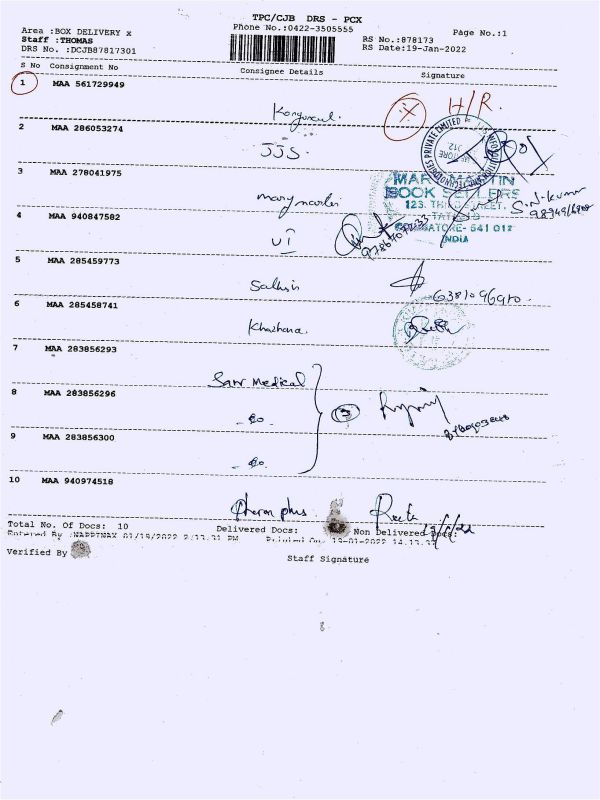 TPC/CJB DRS - PCX
Phone No.:0422-3505555
Area :BOX DELIVERY x
RS No.:878173
Page No.:1
Staff :THOMAS
DRS No. :DCJB87817301
RS Date:19-Jan-2022
S No Consignment No
Consignee Details
Signature
1 MAA 561729949
H/R.
2 MAA 286053274
JJS.
3 MAA 278041975
MARY MARTIN
BOOK SELLERS
123, THIRD STREET,
COIMBATORE- 641 012
INDIA
S.N.kumar
4 MAA 940847582
UI
5 MAA 285459773
6 MAA 285458741
Khazhana.
7 MAA 283856293
Medical
8 MAA 283856296
- Do -
3
9 MAA 283856300
- Do -
10 MAA 940974518
plus
Total No. Of Docs: 10
Delivered Docs:
Non Delivered Docs:
Entered By :NAPPINAX 01/19/2022 2:13:31 PM
Printed On: 19-01-2022 14.13.37
Verified By
Staff Signature